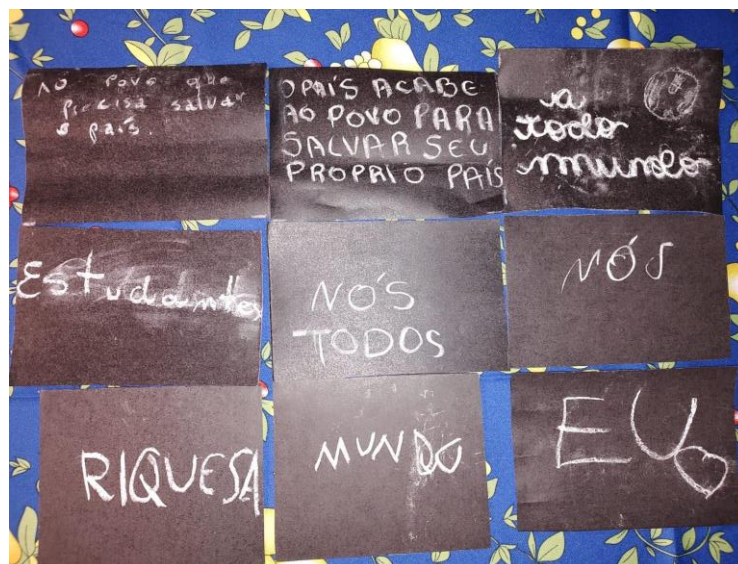 AO POVO que
precisa salvar
o país.
O PAÍS ACABE
AO POVO PARA
SALVAR SEU
PROPRIO PAÍS
a
todo
mundo
Estudantes
NÓS
TODOS
NÓS
RIQUESA
MUNDO
EU